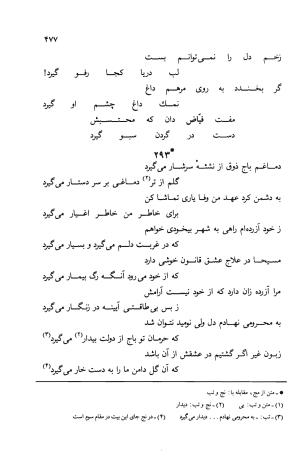 ۴۷۷
زخم دل را نمی‌توانم بست
لب دریا کجا رفو گیرد!
گر بخندد به روی مرهم داغ
نمك داغ چشم او گیرد
مفت فیّاض دان که محتسبش
دست در گردن سبو گیرد
*۲۹۳
دماغم باج ذوق از نشئهٔ سرشار می‌گیرد
گلم از تر(۱) دماغی بر سر دستار می‌گیرد
به دشمن کرد عهد من وفا یاری تماشا کن
برای خاطر من خاطر اغیار می‌گیرد
ز خود آزرده‌ام راهی به شهر بیخودی خواهم
که در غربت دلم می‌گیرد و بسیار می‌گیرد
مسیحا در علاج عشق قانون خوشی دارد
که از خود می‌رود آنگه رگ بیمار می‌گیرد
مرا آزرده زان دارد که از خود نیست آرامش
ز بس بی‌طاقتی آیینه در زنگار می‌گیرد
به محرومی نهادم دل ولی نومید نتوان شد
که حرمان تو باج از دولت بیدار(۲) می‌گیرد(۳)
زبون غیر اگر گشتیم در عشقش از آن باشد
که آن گل دامن ما را به دست خار می‌گیرد(۴)
* ـ متن از مج، مقابله با: نج و لب
(۱) ـ متن و لب: بی (۲) ـ نج و لب: دیدار
(۳) ـ لب: ـ به محرومی نهادم . . . دیدار می‌گیرد (۴) ـ در نج جای این بیت در مقام سوم است